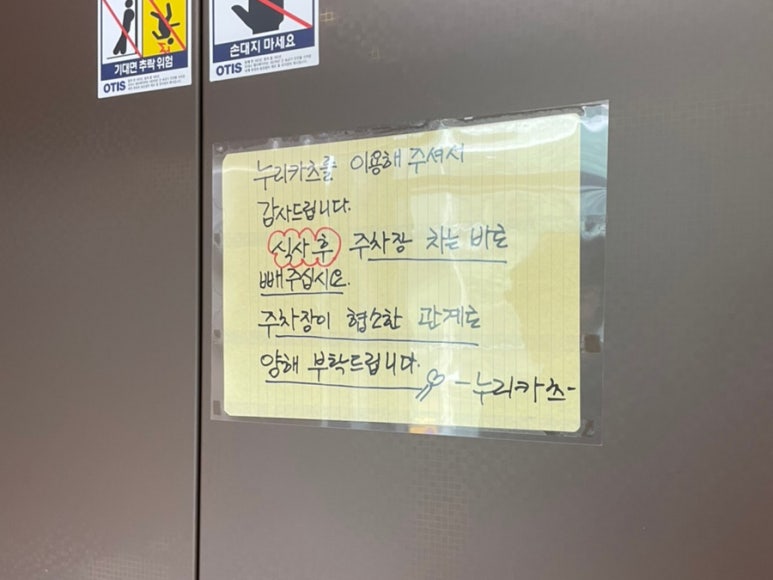 기대면 추락 위험
OTIS
손대지 마세요
OTIS
누리카츠를 이용해 주셔서
감사드립니다.
식사 후 주차장 차는 바로
빼 주십시요.
주차장이 협소한 관계로
양해 부탁드립니다.
-누리카츠-